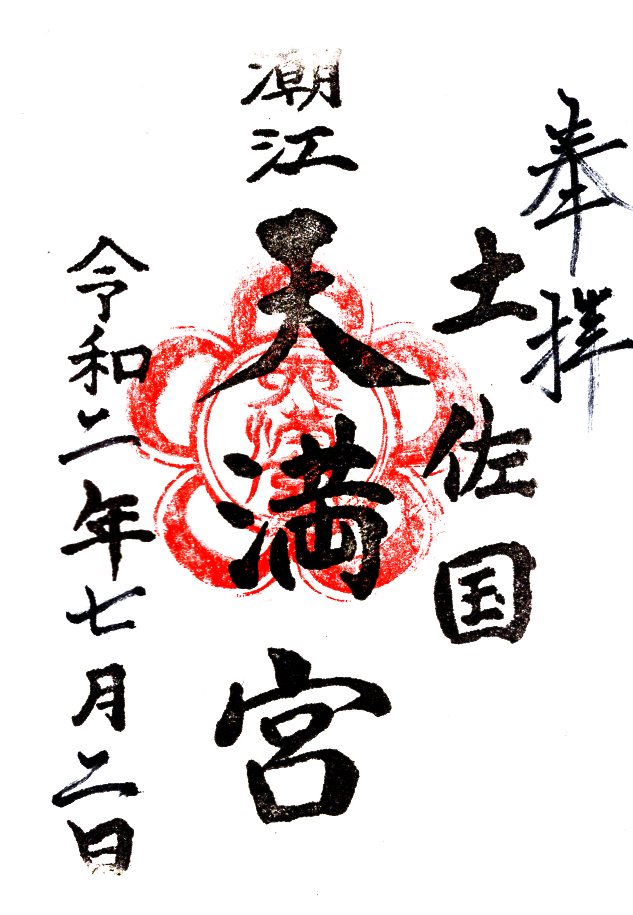 奉拝
土佐国
潮江天満宮
令和二年七月二日